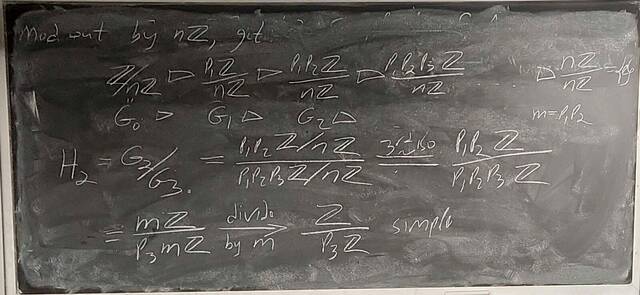 Mod out by nZ, get
Z/nZ ▷ P₁Z/nZ ▷ P₁P₂Z/nZ ▷ P₁P₂P₃Z/nZ ... ▷ nZ/nZ = {0}
G₀ ▷ G₁ ▷ G₂ ▷ m=P₁P₂
H₂ = G₂/G₃. = (P₁P₂Z/nZ)/(P₁P₂P₃Z/nZ) 3rd iso = P₁P₂Z/P₁P₂P₃Z
= mZ/P₃mZ divide by m → Z/P₃Z simple